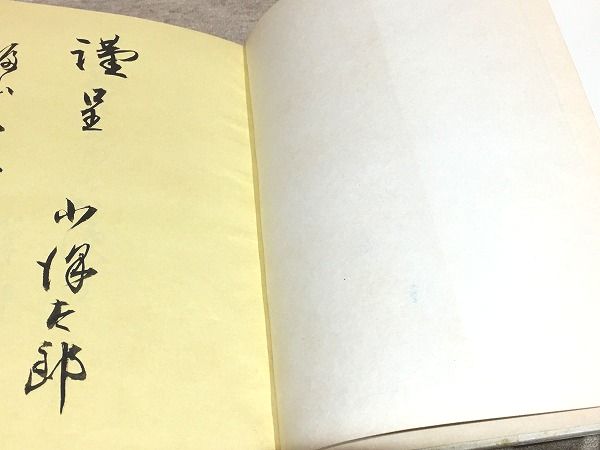 謹呈
小澤太郎